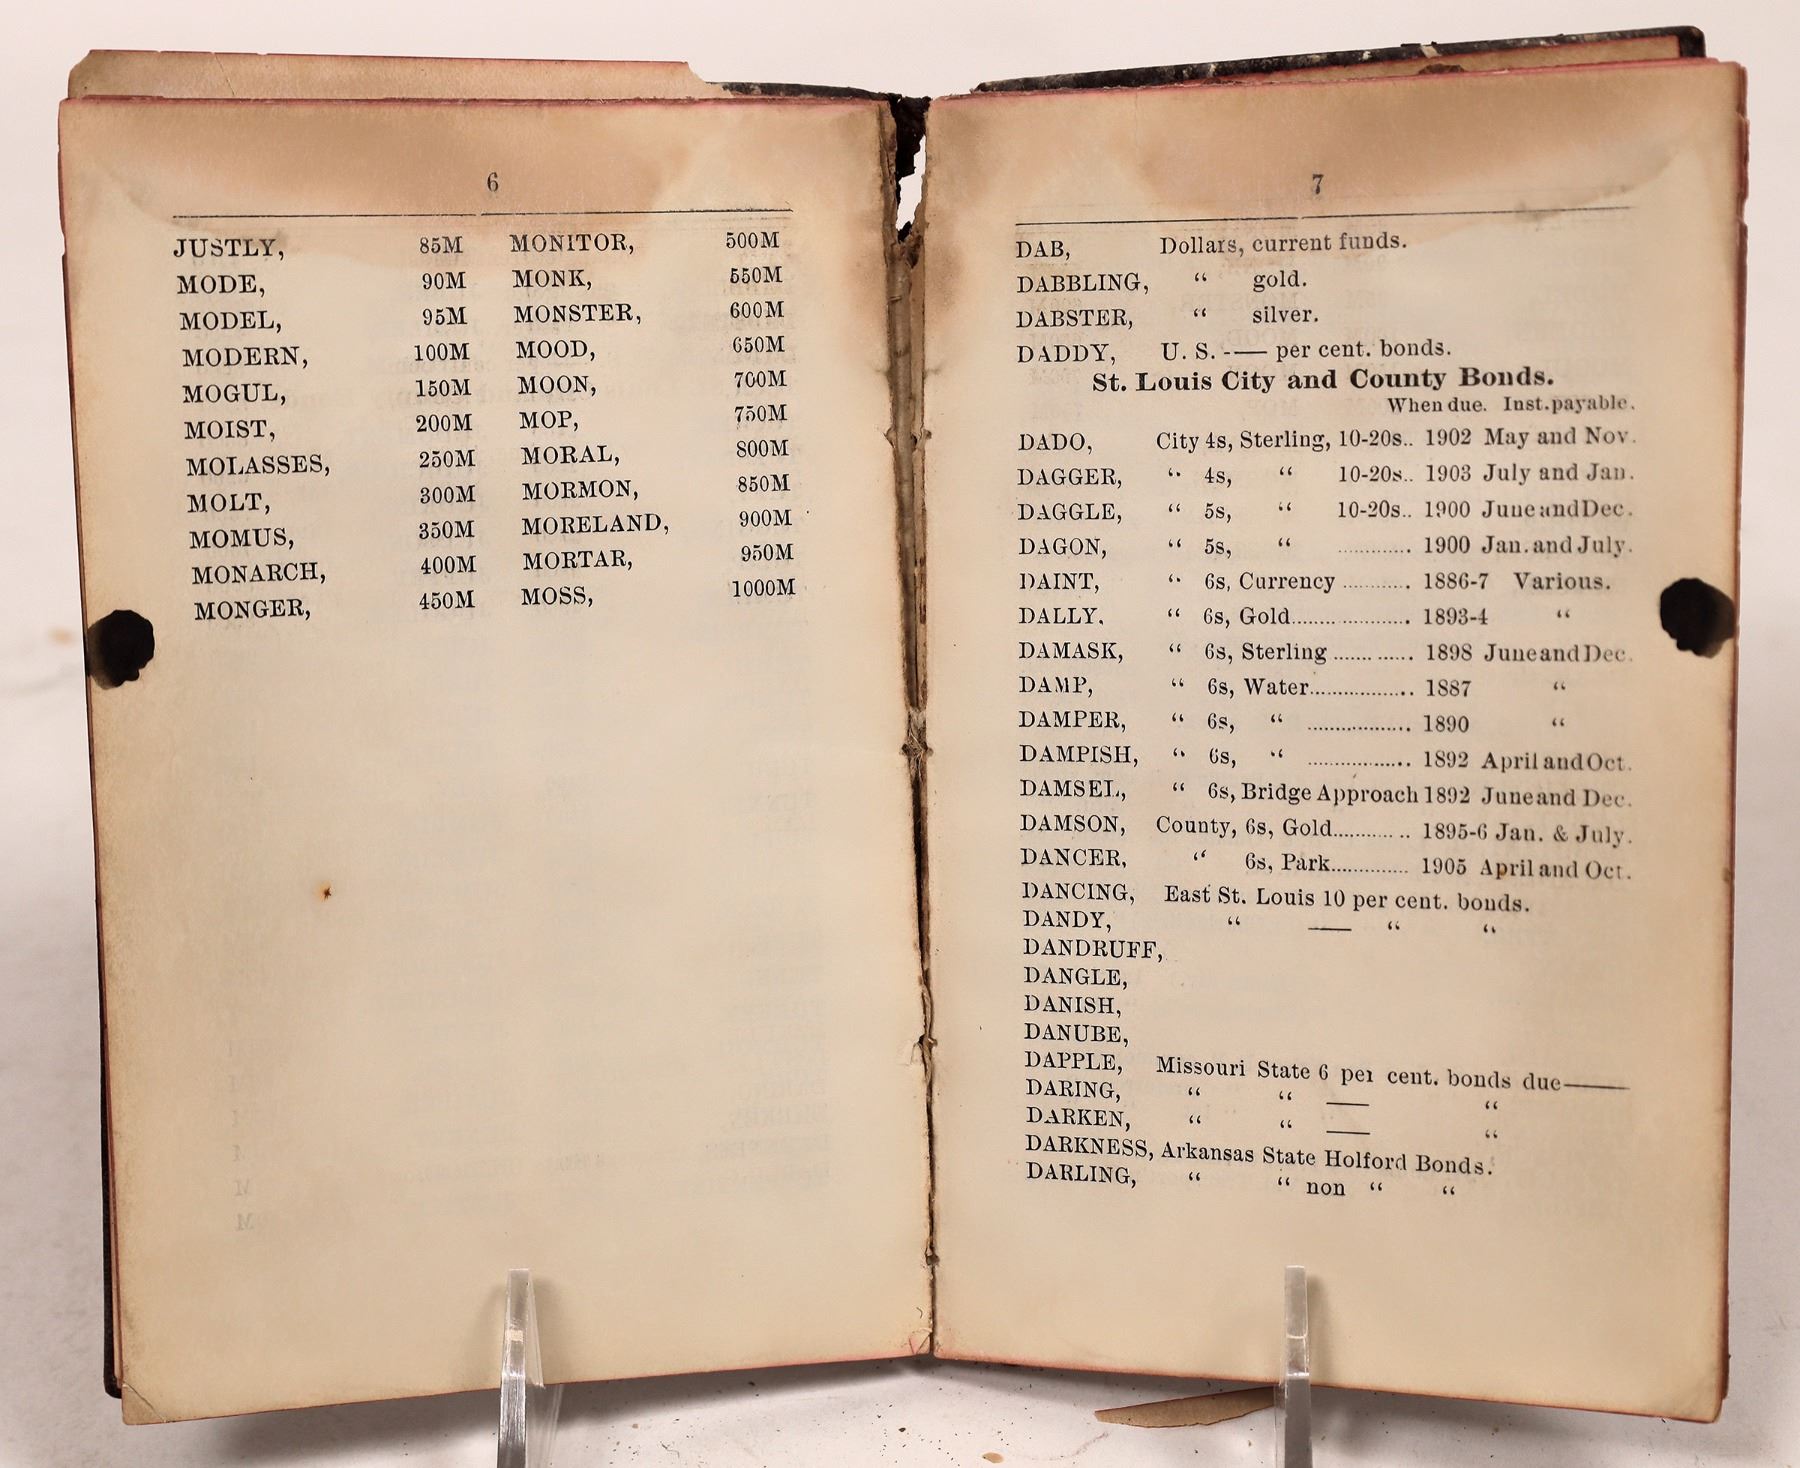 6
JUSTLY, 85M MONITOR, 500M
MODE, 90M MONK, 550M
MODEL, 95M MONSTER, 600M
MODERN, 100M MOOD, 650M
MOGUL, 150M MOON, 700M
MOIST, 200M MOP, 750M
MOLASSES, 250M MORAL, 800M
MOLT, 300M MORMON, 850M
MOMUS, 350M MORELAND, 900M
MONARCH, 400M MORTAR, 950M
MONGER, 450M MOSS, 1000M
7
DAB, Dollars, current funds.
DABBLING, “ gold.
DABSTER, “ silver.
DADDY, U. S. -— per cent. bonds.
St. Louis City and County Bonds.
When due. Inst. payable.
DADO, City 4s, Sterling, 10-20s.. 1902 May and Nov.
DAGGER, “ 4s, “ 10-20s.. 1903 July and Jan.
DAGGLE, “ 5s, “ 10-20s.. 1900 June and Dec.
DAGON, “ 5s, “ ............ 1900 Jan. and July.
DAINT, “ 6s, Currency ........... 1886-7 Various.
DALLY. “ 6s, Gold.................... 1893-4 “
DAMASK, “ 6s, Sterling ............. 1898 June and Dec.
DAMP, “ 6s, Water.................. 1887 “
DAMPER, “ 6s, “ .................. 1890 “
DAMPISH, “ 6s, “ .................. 1892 April and Oct.
DAMSEL, “ 6s, Bridge Approach 1892 June and Dec.
DAMSON, County, 6s, Gold............ 1895-6 Jan. & July.
DANCER, “ 6s, Park............. 1905 April and Oct.
DANCING, East St. Louis 10 per cent. bonds.
DANDY, “ — “ “
DANDRUFF,
DANGLE,
DANISH,
DANUBE,
DAPPLE, Missouri State 6 per cent. bonds due——
DARING, “ “ — “
DARKEN, “ “ — “
DARKNESS, Arkansas State Holford Bonds.
DARLING, “ “ non “ “